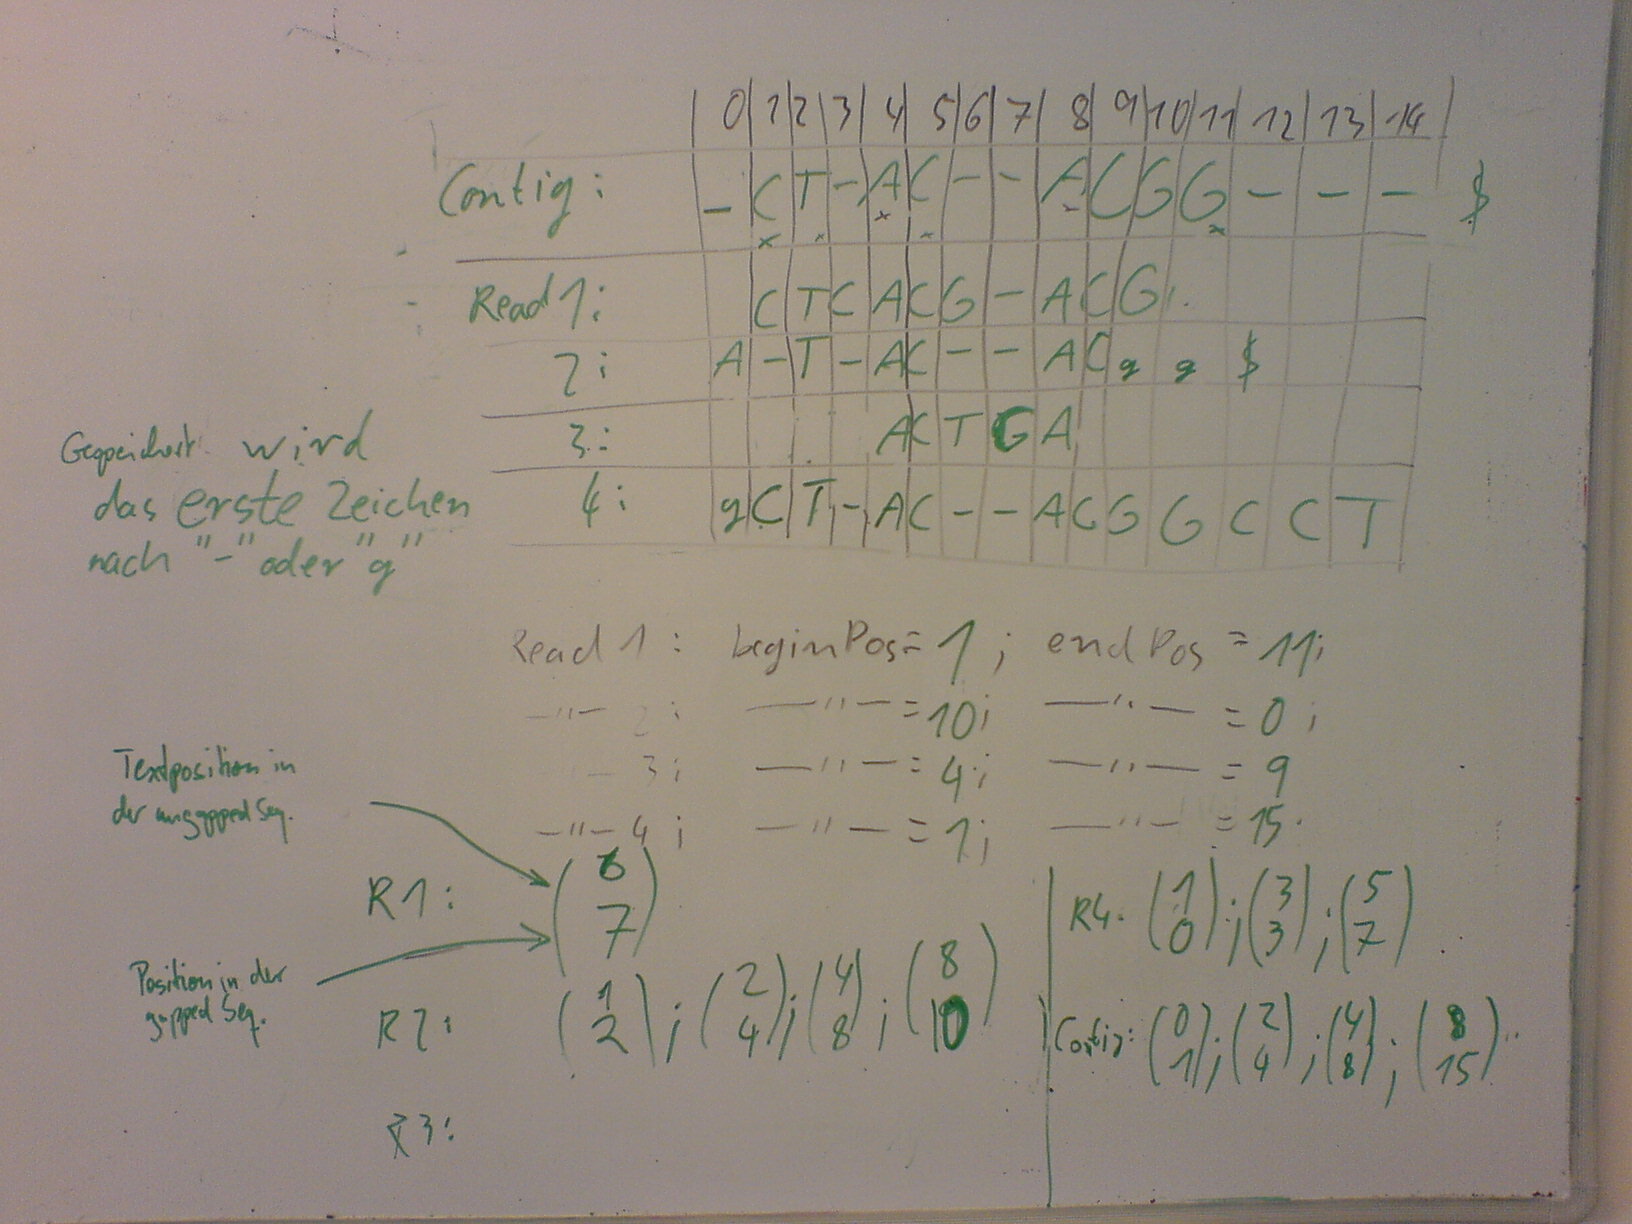 0 1 2 3 4 5 6 7 8 9 10 11 12 13 14
Contig: - C T - A C - - A C G G - - - $
Read 1: C T C A C G - A C G
2: A - T - A C - - A C g g $
3: A C T G A
4: g C T - A C - - A C G G C C T
Gespeichert wird
das erste Zeichen
nach "-" oder "g"
Read 1: beginPos = 1; endPos = 11;
—"— 2: —"— = 10; —"— = 0;
— 3; —"— = 4; —"— = 9
—"— 4; —"— = 1; —"— = 15.
Textposition in
der ungapped Seq.
Position in der
gapped Seq.
R1: (6 7)
R2: (1 2); (2 4); (4 8); (8 10)
R3:
R4: (1 0); (3 3); (5 7)
Contig: (0 1); (2 4); (4 8); (8 15)